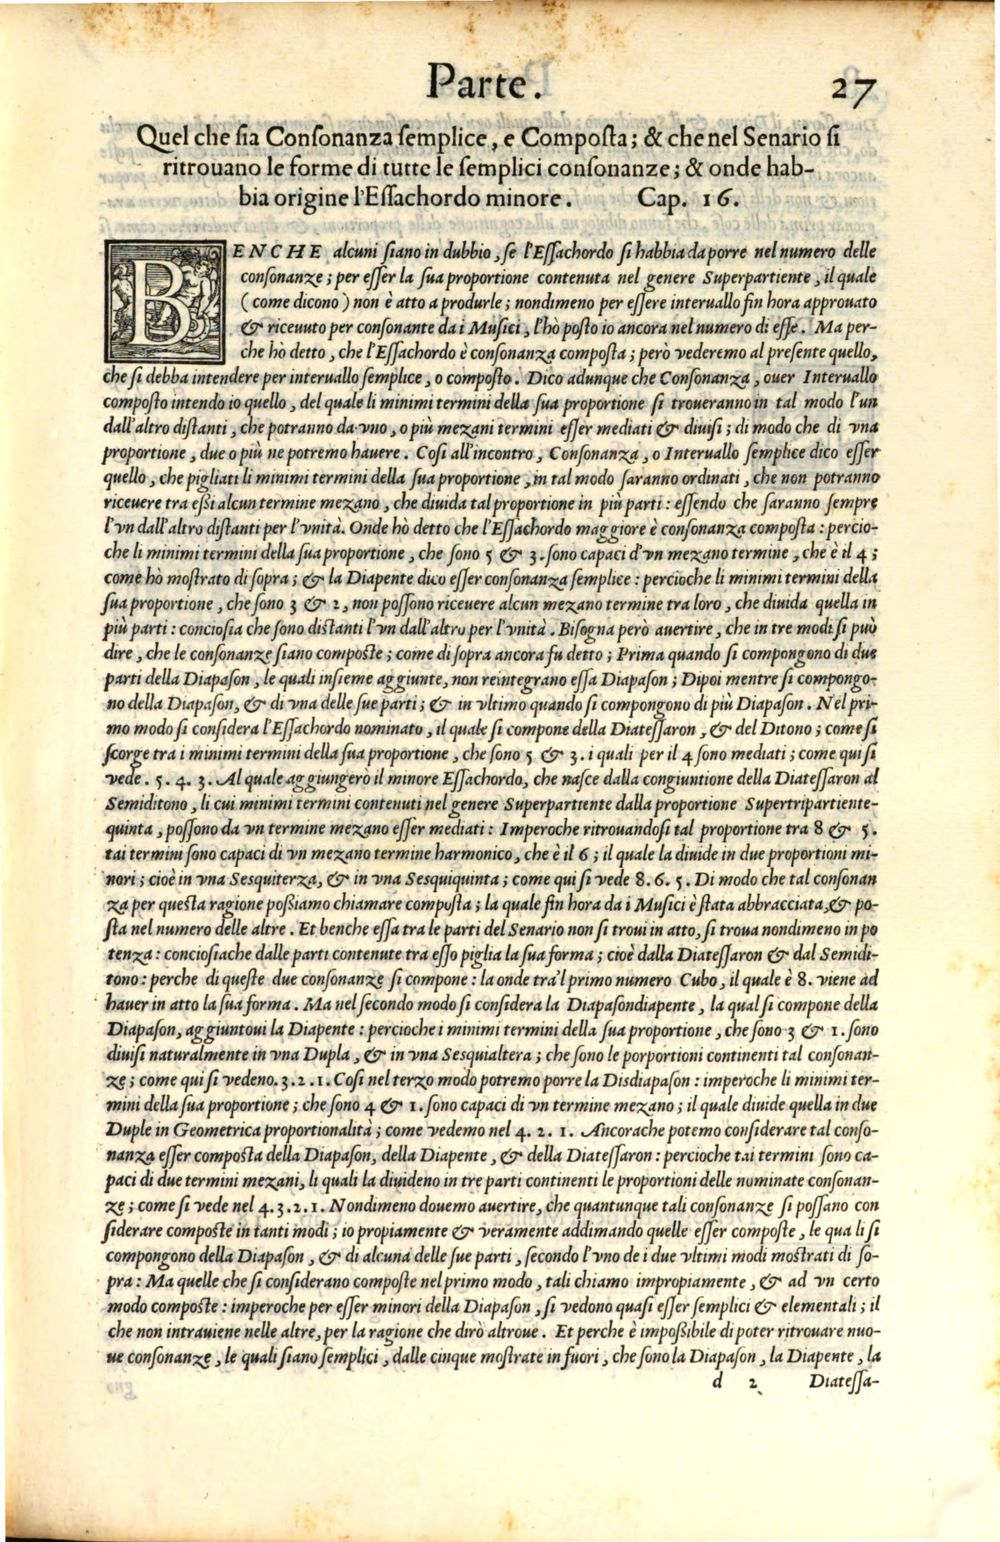 Parte. 27
Quel che sia Consonanza semplice, e Composta; & che nel Senario si
ritrouano le forme di tutte le semplici consonanze; & onde hab-
bia origine l'Essachordo minore. Cap. 16.
BENCHE alcuni siano in dubbio, se l'Essachordo si habbia da porre nel numero delle
consonanze; per esser la sua proportione contenuta nel genere Superpartiente, il quale
(come dicono) non è atto a produrle; nondimeno per essere interuallo fin hora approuato
& riceuuto per consonante da i Musici, l'hò posto io ancora nel numero di esse. Ma per-
che hò detto, che l'Essachordo è consonanza composta; però vederemo al presente quello,
che si debba intendere per interuallo semplice, o composto. Dico adunque che Consonanza, ouer Interuallo
composto intendo io quello, del quale li minimi termini della sua proportione si troueranno in tal modo l'un
dall'altro distanti, che potranno da vno, o più mezani termini esser mediati & diuisi; di modo che di vna
proportione, due o più ne potremo hauere. Cosi all'incontro, Consonanza, o Interuallo semplice dico esser
quello, che pigliati li minimi termini della sua proportione, in tal modo saranno ordinati, che non potranno
riceuere tra essi alcun termine mezano, che diuida tal proportione in più parti: essendo che saranno sempre
l'vn dall'altro distanti per l'vnità. Onde hò detto che l'Essachordo maggiore è consonanza composta: percio-
che li minimi termini della sua proportione, che sono 5 & 3. sono capaci d'vn mezano termine, che è il 4;
come hò mostrato di sopra; & la Diapente dico esser consonanza semplice: percioche li minimi termini della
sua proportione, che sono 3 & 2, non possono riceuere alcun mezano termine tra loro, che diuida quella in
più parti: conciosia che sono distanti l'vn dall'altro per l'vnità. Bisogna però auertire, che in tre modi si può
dire, che le consonanze siano composte; come di sopra ancora fu detto; Prima quando si compongono di due
parti della Diapason, le quali insieme aggiunte, non reintegrano essa Diapason; Dipoi mentre si compongo-
no della Diapason, & di vna delle sue parti; & in vltimo quando si compongono di più Diapason. Nel pri-
mo modo si considera l'Essachordo nominato, il quale si compone della Diatessaron, & del Ditono; come si
scorge tra i minimi termini della sua proportione, che sono 5 & 3. i quali per il 4 sono mediati; come qui si
vede. 5. 4. 3. Al quale aggiungerò il minore Essachordo, che nasce dalla congiuntione della Diatessaron al
Semiditono, li cui minimi termini contenuti nel genere Superpartiente dalla proportione Supertripartiente-
quinta, possono da vn termine mezano esser mediati: Imperoche ritrouandosi tal proportione tra 8 & 5.
tai termini sono capaci di vn mezano termine harmonico, che è il 6; il quale la diuide in due proportioni mi-
nori; cioè in vna Sesquiterza, & in vna Sesquiquinta; come qui si vede 8. 6. 5. Di modo che tal consonan
za per questa ragione possiamo chiamare composta; la quale fin hora da i Musici è stata abbracciata, & po-
sta nel numero delle altre. Et benche essa tra le parti del Senario non si troui in atto, si troua nondimeno in po
tenza: conciosiache dalle parti contenute tra esso piglia la sua forma; cioè dalla Diatessaron & dal Semidi-
tono: perche di queste due consonanze si compone: la onde tra'l primo numero Cubo, il quale è 8. viene ad
hauer in atto la sua forma. Ma nel secondo modo si considera la Diapasondiapente, la qual si compone della
Diapason, aggiuntoui la Diapente: percioche i minimi termini della sua proportione, che sono 3 & 1. sono
diuisi naturalmente in vna Dupla, & in vna Sesquialtera; che sono le porportioni continenti tal consonan-
ze; come qui si vedeno. 3. 2. 1. Cosi nel terzo modo potremo porre la Disdiapason: imperoche li minimi ter-
mini della sua proportione; che sono 4 & 1. sono capaci di vn termine mezano; il quale diuide quella in due
Duple in Geometrica proportionalità; come vedemo nel 4. 2. 1. Ancorache potemo considerare tal conso-
nanza esser composta della Diapason, della Diapente, & della Diatessaron: percioche tai termini sono ca-
paci di due termini mezani, li quali la diuideno in tre parti continenti le proportioni delle nominate consonan-
ze; come si vede nel 4. 3. 2. 1. Nondimeno douemo auertire, che quantunque tali consonanze si possano con
siderare composte in tanti modi; io propiamente & veramente addimando quelle esser composte, le qua li si
compongono della Diapason, & di alcuna delle sue parti, secondo l'vno de i due vltimi modi mostrati di so-
pra: Ma quelle che si considerano composte nel primo modo, tali chiamo impropiamente, & ad vn certo
modo composte: imperoche per esser minori della Diapason, si vedono quasi esser semplici & elementali; il
che non intrauiene nelle altre, per la ragione che dirò altroue. Et perche è impossibile di poter ritrouare nuo-
ue consonanze, le quali siano semplici, dalle cinque mostrate in fuori, che sono la Diapason, la Diapente, la
d 2 Diatessa-